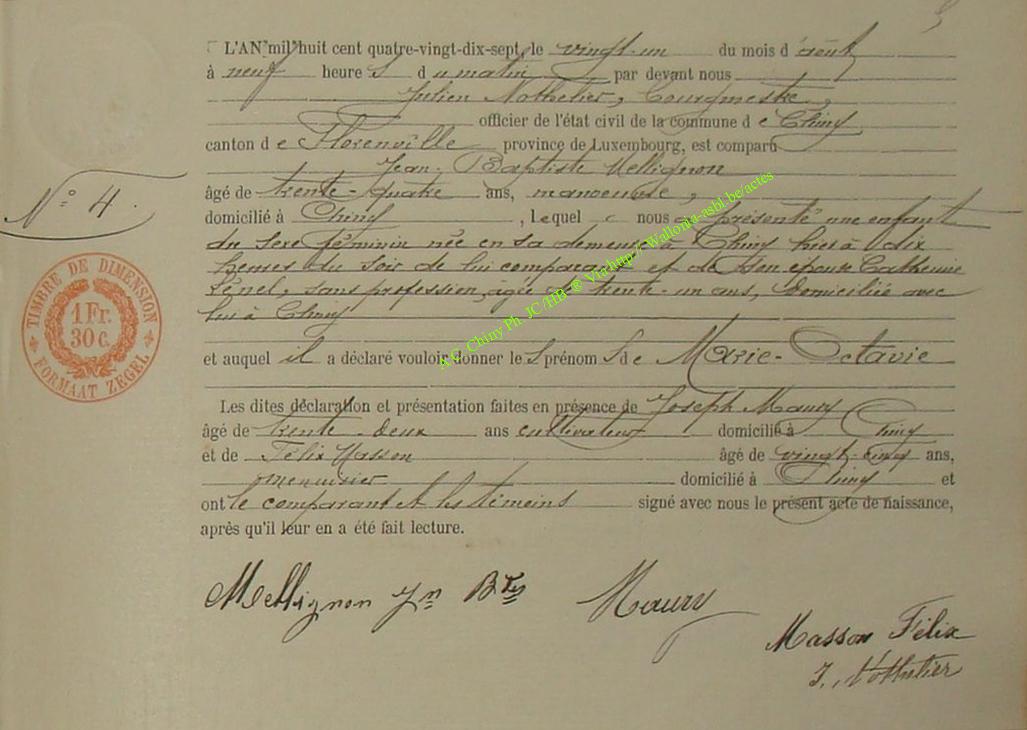 L'AN mil huit cent quatre-vingt-dix-sept, le vingt-un du mois d'août
à neuf heures du matin par devant nous
Julien Nothelier, Bourgmestre,
officier de l'état civil de la commune de Chiny
canton de Florenville province de Luxembourg, est comparu
Jean Baptiste Mellignon
N° 4.
âgé de trente-quatre ans, manoeuvre,
domicilié à Chiny, lequel nous a présenté une enfant
du sexe féminin née en sa demeure à Chiny hier à dix
heures du soir de lui comparant et de son épouse Catherine
sans profession, agée de trente-un ans, domiciliée avec
lui à Chiny
et auquel il a déclaré vouloir donner les prénoms de Marie-Octavie
TIMBRE DE DIMENSION
1 Fr.
30 c.
FORMAAT ZEGEL
Les dites déclaration et présentation faites en présence de Joseph Maury
âgé de trente deux ans cultivateur domicilié à Chiny
et de Félix Masson âgé de vingt-cinq ans,
menuisier domicilié à Chiny et
ont le comparant et les témoins signé avec nous le présent acte de naissance,
après qu'il leur en a été fait lecture.
Mellignon Jn Bte
Maury
Masson Félix
J. Nothelier
A.G. Chiny Ph. JC/HB ® Via http://Wallonia-asbl.be/actes